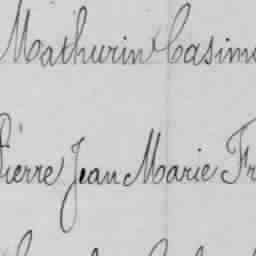 Mathurin Casim
Pierre Jean Marie Fr